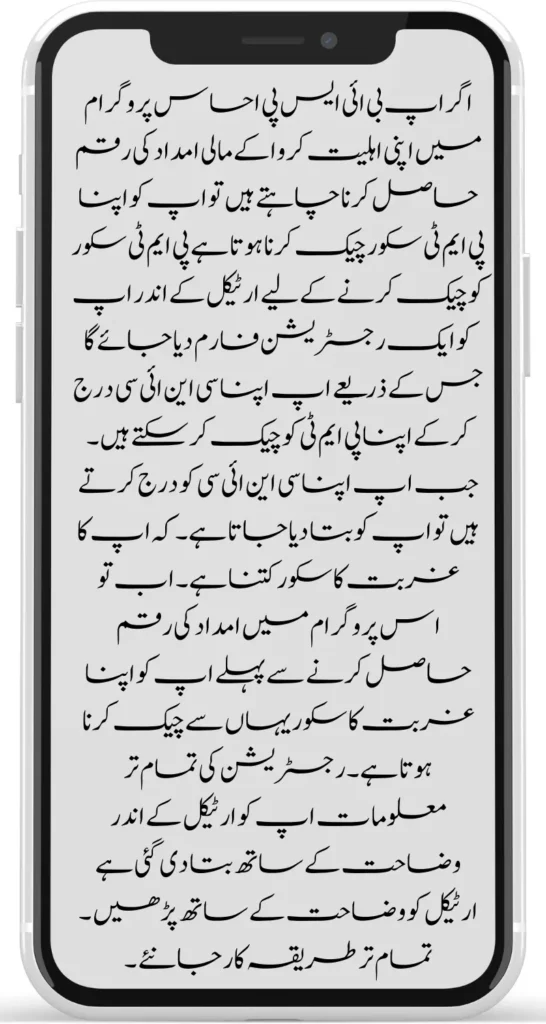 اگر اپ بی ائی ایس پی احساس پروگرام
میں اپنی اہلیت کروا کے مالی امداد کی رقم
حاصل کرنا چاہتے ہیں تو اپ کو اپنا
پی ایم ٹی سکور چیک کرنا ہوتا ہے پی ایم ٹی سکور
کو چیک کرنے کے لیے ارٹیکل کے اندر اپ
کو ایک رجسٹریشن فارم دیا جائے گا
جس کے ذریعے اپ اپنا سی این ائی سی درج
کر کے اپنا پی ایم ٹی کو چیک کر سکتے ہیں۔
جب اپ اپنا سی این ائی سی کو درج کرتے
ہیں تو اپ کو بتا دیا جاتا ہے۔ کہ اپ کا
غربت کا سکور کتنا ہے۔ اب تو
اس پروگرام میں امداد کی رقم
حاصل کرنے سے پہلے اپ کو اپنا
غربت کا سکور یہاں سے چیک کرنا
ہوتا ہے۔ رجسٹریشن کی تمام تر
معلومات اپ کو ارٹیکل کے اندر
وضاحت کے ساتھ بتا دی گئی ہے
ارٹیکل کو وضاحت کے ساتھ پڑھیں۔
تمام تر طریقہ کار جانئے۔